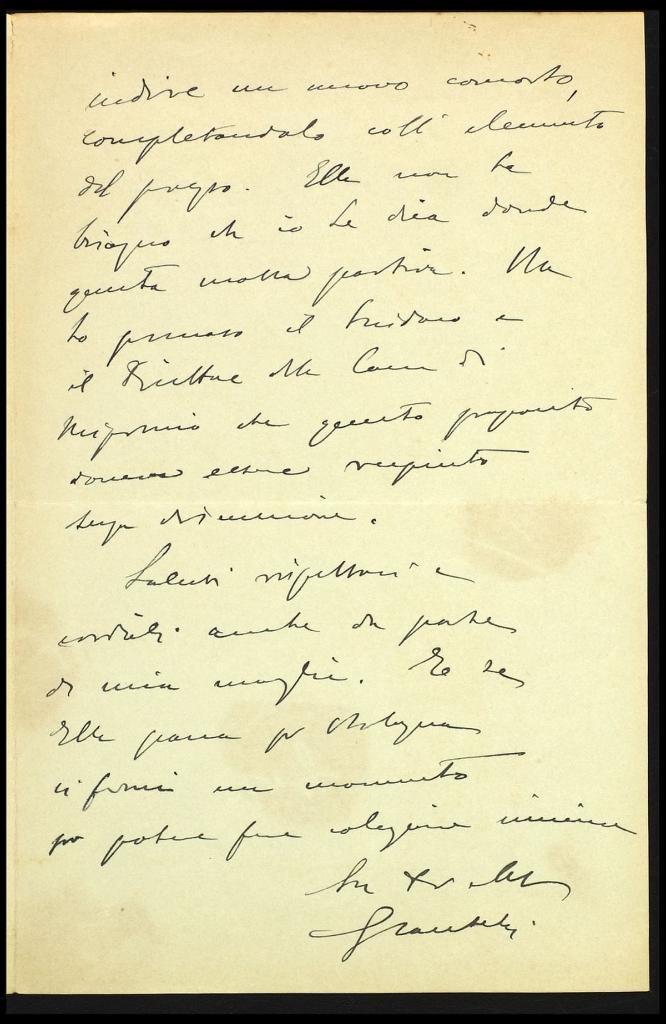 indire un nuovo concorso,
completandolo coll' elemento
del prezzo. Ella non ha
bisogno ch io Le dica donde
questa mossa partiva. Ma
ho persuaso il Sindaco e
il Direttore della Cassa di
Risparmio che questo proposito
doveva essere respinto
senza discussione.
Saluti rispettosi e
cordiali anche da parte
di mia moglie. E se
Ella passa per Bologna
si fermi un momento
per poter fare colazione insieme
Suo